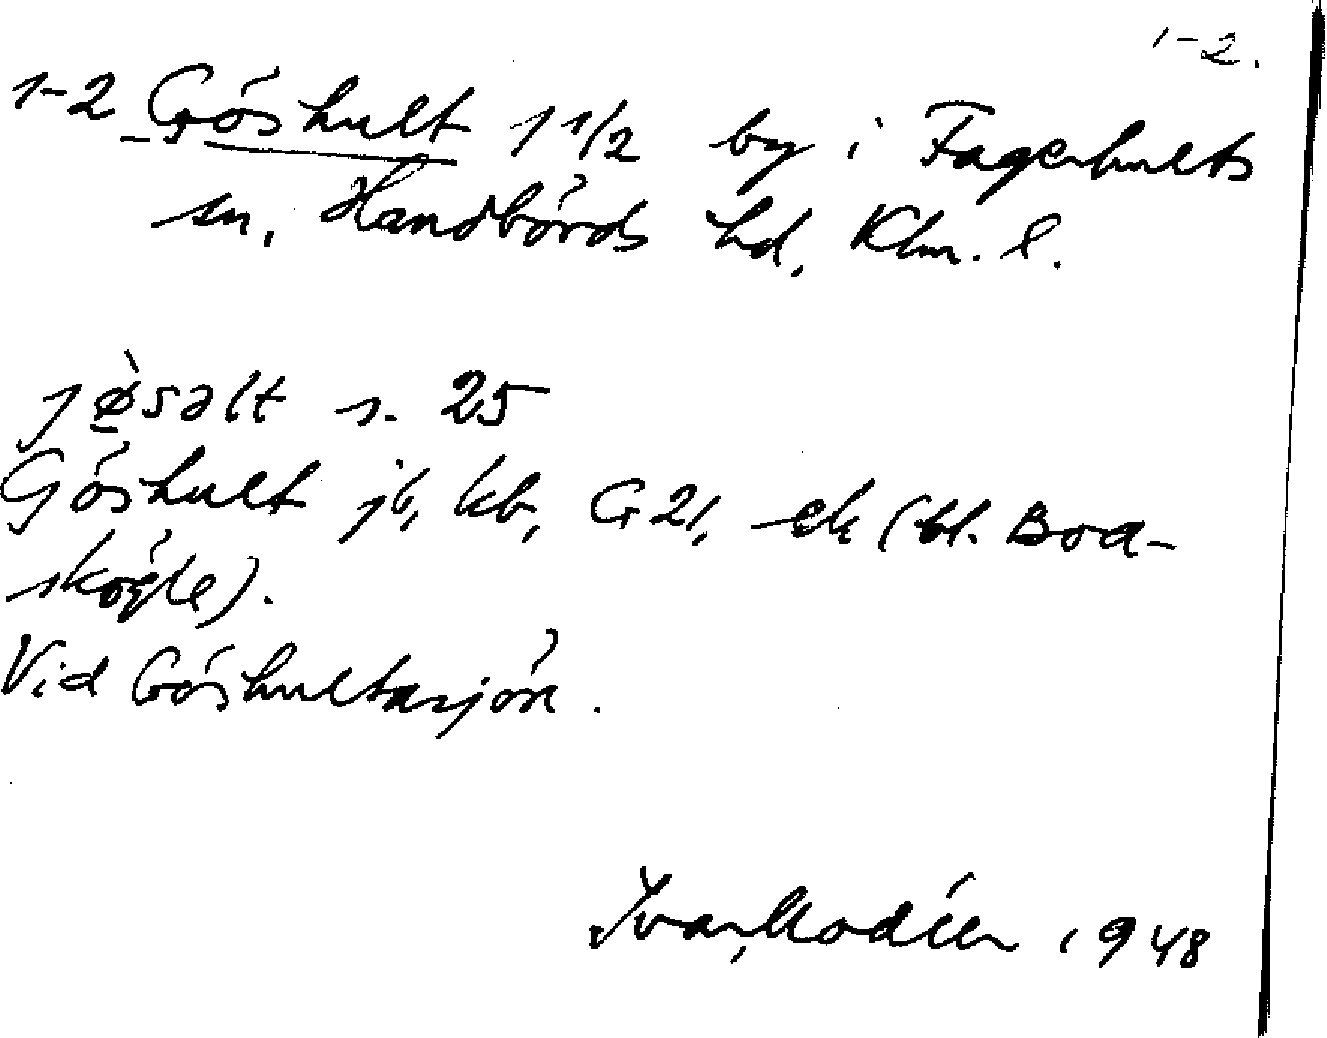 1-2.
1-2 Göshult 1 1/2 by i Fagerhults
sn, Handbörds hd, Klm. l.
jø̀səlt s. 25
Göshult jb, kb, G 21, ek (bl. Boa-
skögle).
Vid Göshultasjön.
Ivar Modéer 1948